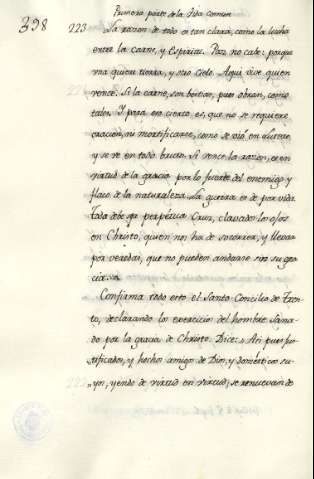 Primera parte de la Vida comun.
398
223 La razon de todo es tan clara, como la lucha
entre la carne, y Espiritu. Paz no cabe: porque
una quiere tierra, y otro cielo. Aqui vive quien
vence. Si la carne, son bestias, pues obran, como
tales. Y para en cierto es, que no se requiere
oracion, ni mortificarse, como se vió en Lutero,
y se ve en todo bruto. Si vence la razon, es en
virtud de la gracia por lo fuerte del enemigo, y
flaco de la naturaleza. La guerra es de por vida.
Toda debe ser perpétua Cruz, clavados los ojos
en Christo, quien nos ha de socorrer, y llevar
por veredas, que no pueden andarse sin su gra-
cia.
Confirma todo esto el Santo Concilio de Tren-
to, declarando la del hombre sana-
do por la gracia de Christo. Dice: Asi pues jus-
tificados, y hechos amigos de Dios, y domésticos su-
yos, yendo de virtud en virtud, se renuevan de